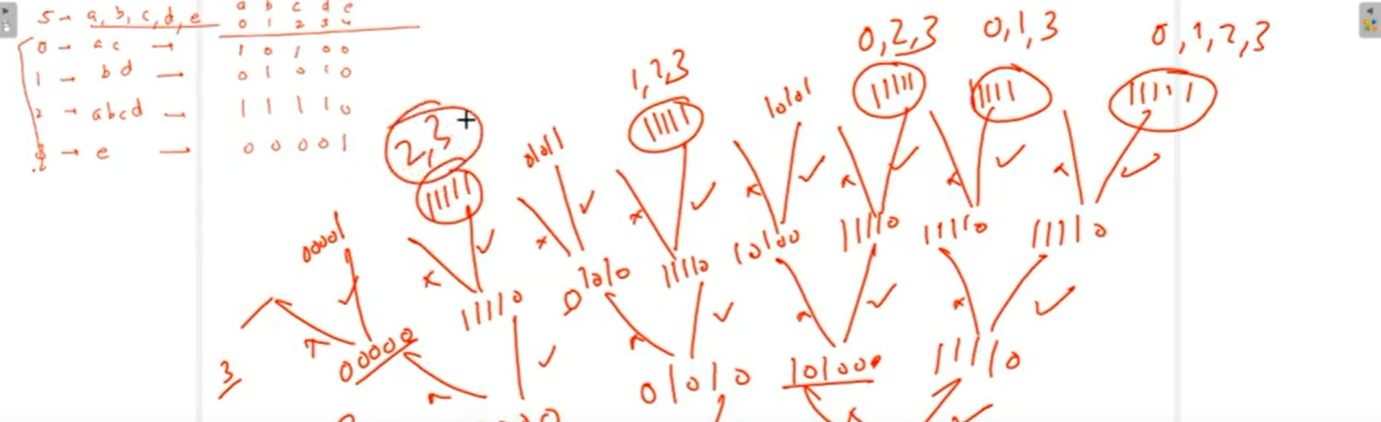 a b c d e
5 - a, b, c, d, e 0 1 2 3 4
0 - ac → 1 0 1 0 0
1 - bd → 0 1 0 1 0
2 - abcd → 1 1 1 1 0
e → 0 0 0 0 1
0, 2, 3 0, 1, 3 0, 1, 2, 3
1, 2, 3 10101 11111 1111 11111
2, 3 11111
01011
11111
00001 11110 01010 11110 10100 11110 11110 11110
00000 01010 10100 11110
3